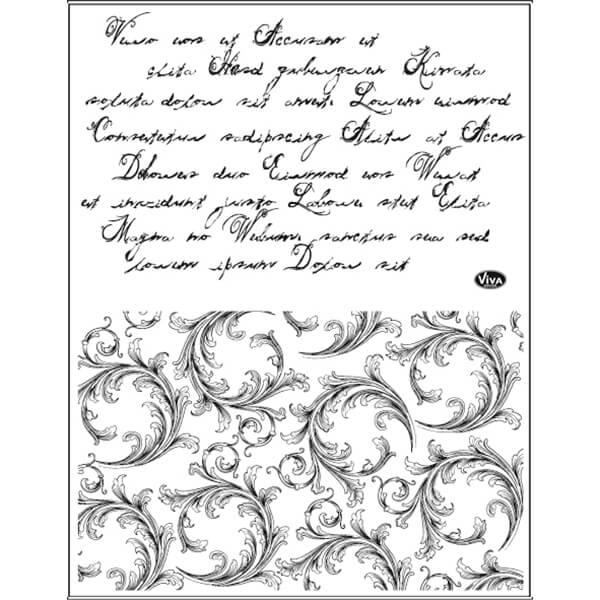 Vero eos et Accusam et
clita Kasd gubergren
soluta dolor sit amet. Lorem eirmod
Consetetur sadipscing Elitr at Accus
Dolores duo Eirmod eos
et invidunt justo Labore stet Clita
Magna no Rebum. sanctus sea sed
lorem ipsum Dolor sit
VIVA